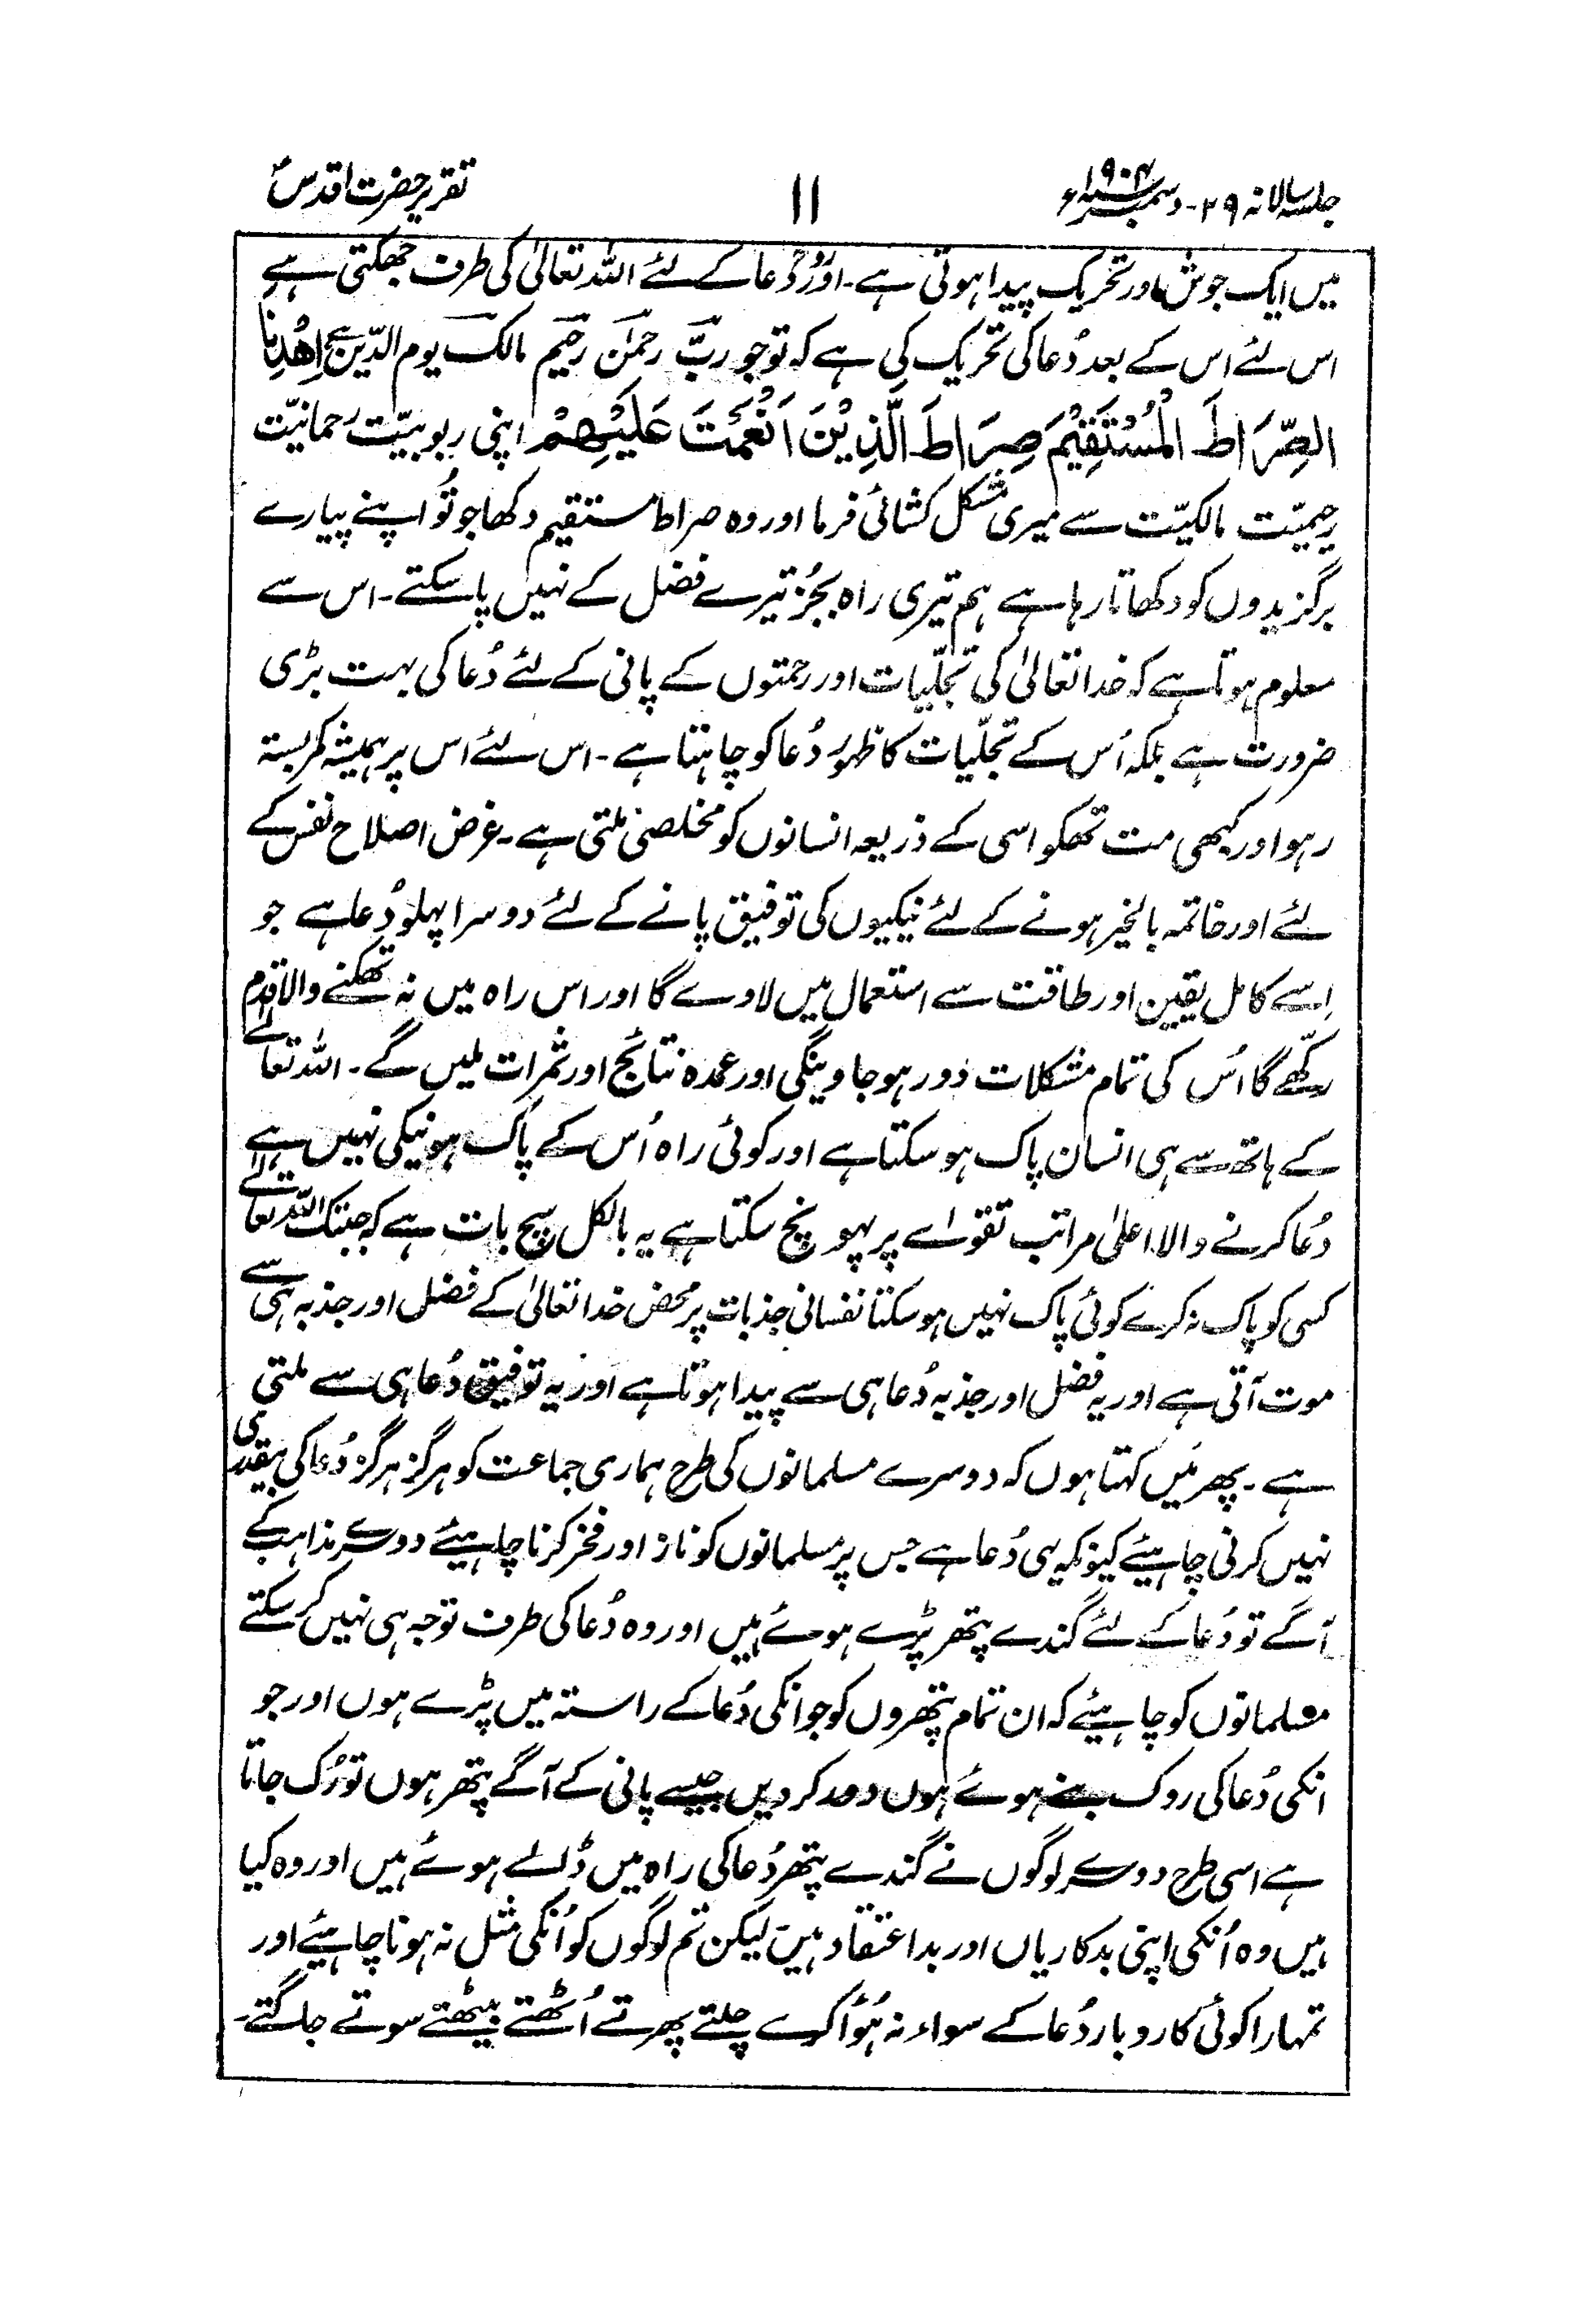 جلسہ سالانہ ۲۹۔ دسمبر ۱۹۰۴ء
۱۱
تقریر حضرت اقدسؑ
میں ایک جوش اور تحریک پیدا ہوتی ہے۔ اور رُوح دُعا کے لئے اللہ تعالیٰ کی طرف جھکتی ہے
اس لئے اس کے بعد دُعا کی تحریک کی ہے کہ تو جو ربّ رحمٰن رحیم مالک یوم الدّین ہے اِهْدِنَا
الصِّرَاطَ الْمُسْتَقِيْمَ صِرَاطَ الَّذِيْنَ اَنْعَمْتَ عَلَيْهِمْ اپنی ربوبیّت رحمانیّت
رحیمیّت مالکیّت سے میری مشکل کشائی فرما اور وہ صراط مستقیم دکھا جو تُو اپنے پیارے
برگزیدوں کو دکھاتا رہا ہے ہم تیری راہ بجُز تیرے فضل کے نہیں پا سکتے۔ اس سے
معلوم ہوتا ہے کہ خدا تعالیٰ کی تجلّیات اور رحمتوں کے پانی کے لئے دُعا کی بہت بڑی
ضرورت ہے بلکہ اُس کے تجلّیات کا ظہور دُعا کو چاہتا ہے۔ اس لئے اس پر ہمیشہ کمربستہ
رہو اور کبھی مت تھکو اسی کے ذریعہ انسانوں کو مخلصی ملتی ہے۔ غرض اصلاح نفس کے
لئے اور خاتمہ بالخیر ہونے کے لئے نیکیوں کی توفیق پانے کے لئے دوسرا پہلو دُعا ہے جو
اِسے کامل یقین اور طاقت سے استعمال میں لاوے گا اور اس راہ میں نہ تھکنے والا قدم
رکھّے گا اُس کی تمام مشکلات دور ہو جاوینگی اور عمدہ نتائج اور ثمرات ملیں گے۔ اللہ تعالےٰ
کے ہاتھ سے ہی انسان پاک ہو سکتا ہے اور کوئی راہ اُس کے پاک ہونیکی نہیں ہے
دُعا کرنے والا اعلیٰ مراتب تقواے پر پہونچ سکتا ہے یہ بالکل سچ بات ہے کہ جبتک اللہ تعالےٰ
کسی کو پاک نہ کرے کوئی پاک نہیں ہو سکتا نفسانی جذبات پر محض خدا تعالیٰ کے فضل اور جذبہ ہی سے
موت آتی ہے اور یہ فضل اور جذبہ دُعا ہی سے پیدا ہوتا ہے اور یہ توفیق دُعا ہی سے ملتی
ہے۔ پھر مَیں کہتا ہوں کہ دوسرے مسلمانوں کی طرح ہماری جماعت کو ہرگز ہرگز دُعا کی بیقدری
نہیں کرنی چاہیئے کیونکہ یہی دُعا ہے جس پر مسلمانوں کو ناز اور فخر کرنا چاہیئے دوسرے مذاہب کے
آگے تو دُعا کے لئے گندے پتھر پڑے ہوئے ہیں اور وہ دُعا کی طرف توجہ ہی نہیں کر سکتے
مسلمانوں کو چاہیئے کہ ان تمام پتھروں کو جو انکی دُعا کے راستہ میں پڑے ہوں اور جو
انکی دُعا کی روک بنے ہوئے ہوں دور کر دیں جیسے پانی کے آگے پتھر ہوں تو رُک جاتا
ہے اسی طرح دوسرے لوگوں نے گندے پتھر دُعا کی راہ میں ڈالے ہوئے ہیں اور وہ کیا
ہیں وہ اُنکی اپنی بدکاریاں اور بداعتقاد ہیں لیکن تم لوگوں کو اُنکی مثل نہ ہونا چاہیئے اور
تمہارا کوئی کاروبار دُعا کے سواء نہ ہُوا کرے چلتے پھرتے اُٹھتے بیٹھتے سوتے جاگتے۔